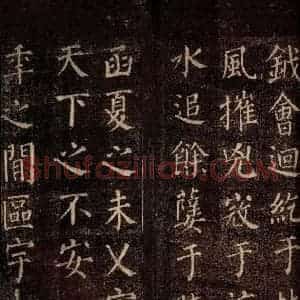 鉞會迴紇于
風摧兇寇于
水追餘孽于
函夏之未乂宇
天下之不安
季之間區宇